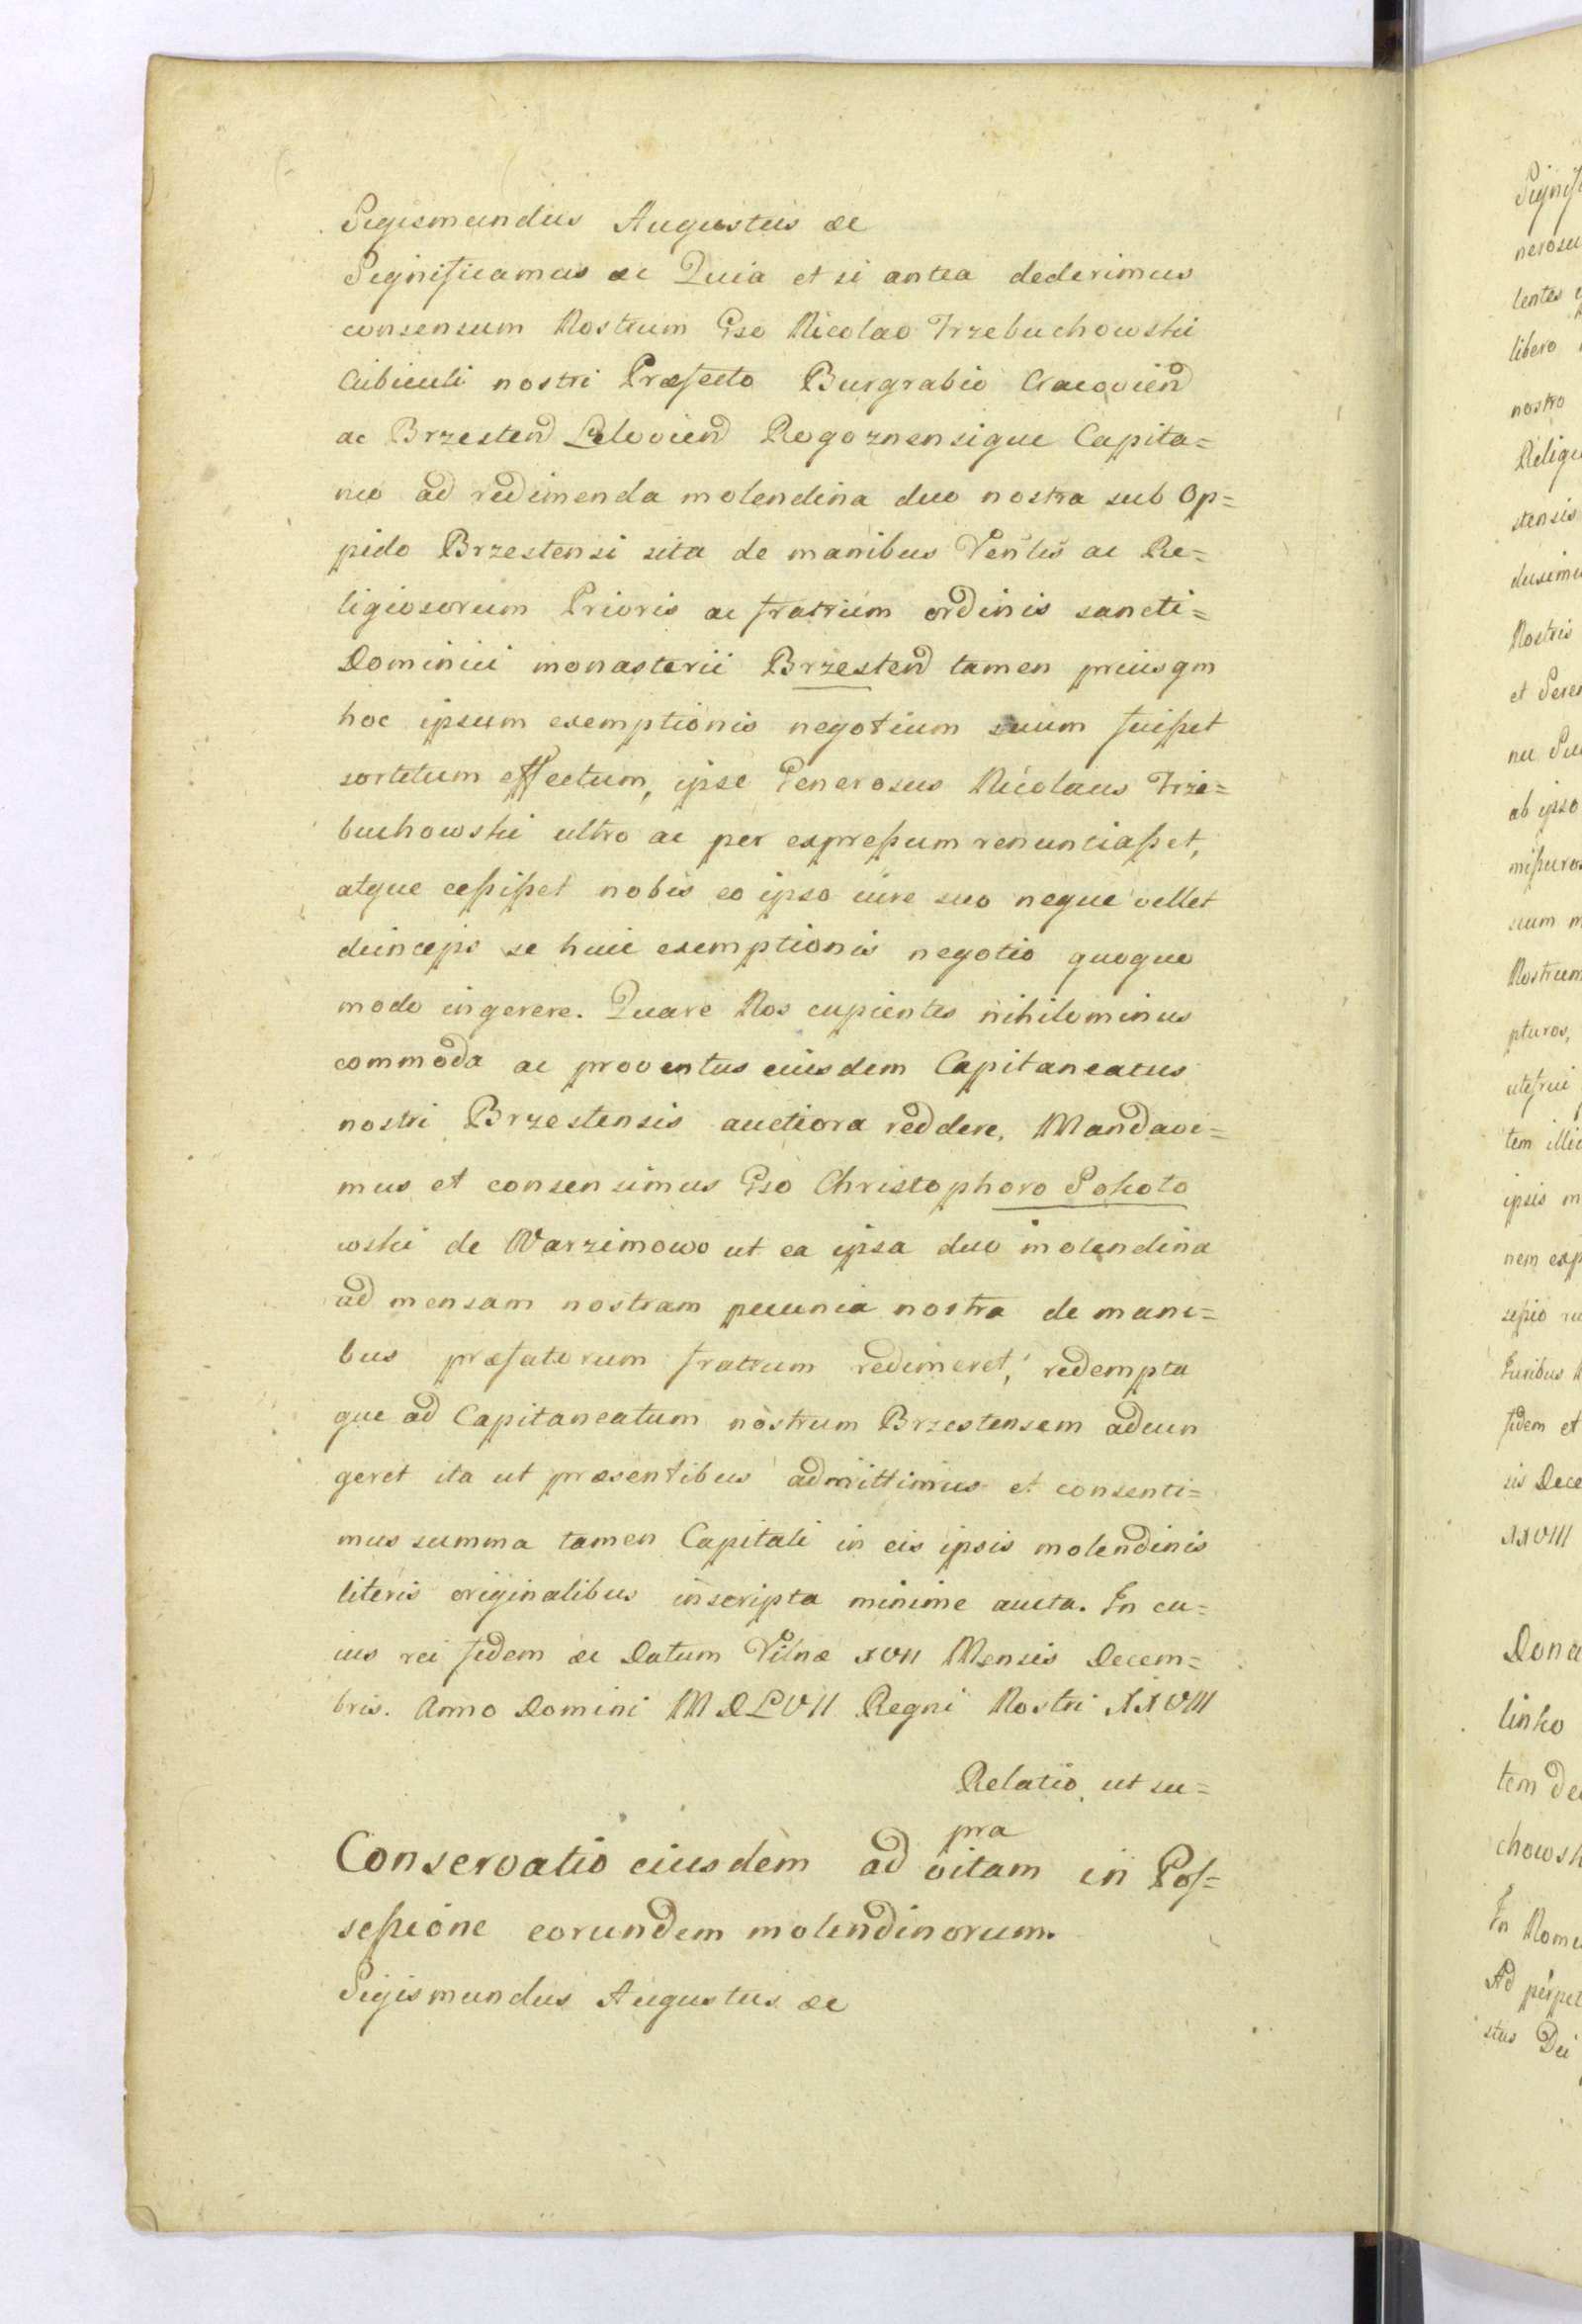 Sigismundus Augustus ac
Significamus ac Quia et si antea dederimus
consensum Nostrum Gso Nicolao Trzebuchowski
Cubiculi nostri Præfecto Burgrabio Cracovien
ac Brzesten Lelovien Rogoznensique Capita=
neo ad redimenda molendina duo nostra sub Op=
pido Brzestensi sita de manibus Venlis ac Re=
ligiosorum Prioris ac fratrum ordinis sancti=
Dominici monasterii Brzesten tamen priusqm
hoc ipsum exemptionis negotium suum fuisset
sortitum effectum, ipse Generosus Nicolaus Trze=
buchowski ultro ac per expressum renuntiasset,
atque cessisset nobis eo ipso iure suo neque vellet
deinceps se huic exemptionis negotio quoquo
modo ingerere. Quare Nos cupientes nihilominus
commoda ac proventus eiusdem Capitaneatus
nostri Brzestensis auctiora reddere, Mandavi=
mus et consensimus Gso Christophoro Sokoto
wski de Warzimowo ut ea ipsa duo molendina
ad mensam nostram pecunia nostra de mani=
bus præfatorum fratrum redimeret, redempta
que ad Capitaneatum nostrum Brzestensem adiun
geret ita ut præsentibus admittimus et consenti=
mus summa tamen Capitali in eis ipsis molendinis
literis originalibus inscripta minime aucta. In cu=
ius rei fidem ac Datum Vilnæ XVII Mensis Decem=
bris. Anno Domini MDLVII Regni Nostri XXVIII
Relatio ut su=
pra
Conservatio eiusdem ad vitam in Pos=
sessione eorundem molendinorum.
Sigismundus Augustus ac
nerosu
lentes
libero
nostro
Religi
stensis
Nostris
ab ipso
Nostrum
pturos,
tem illi
ipsis m
nem exp
fidem et
sis Dece
XXVIII
Dona
linko
tem de
chowsk
In Nomi
Ad perpet
stus Dei